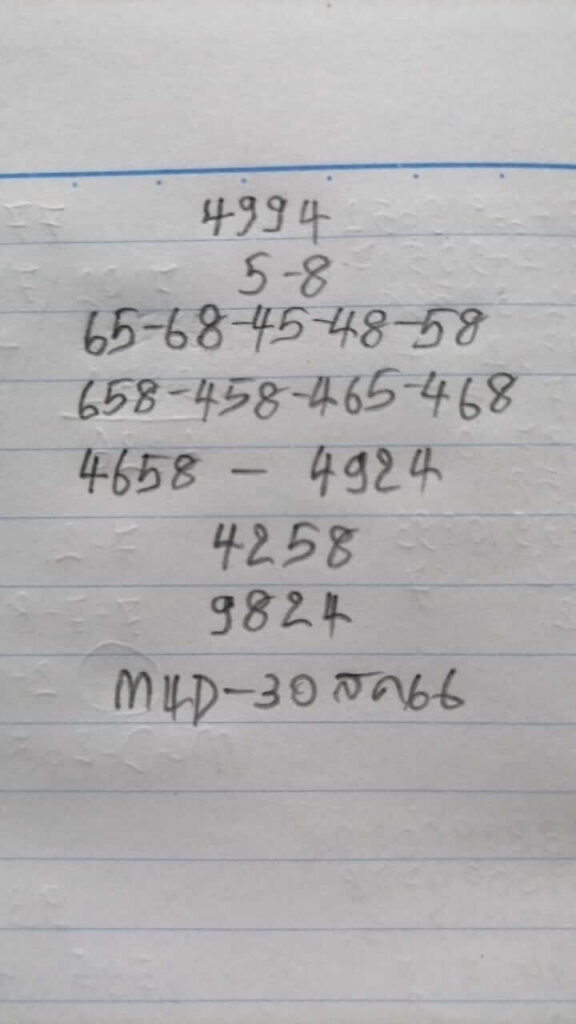 4994
5-8
65-68-45-48-58
658-458-465-468
4658 - 4924
4258
9824
M4D-30 สค66